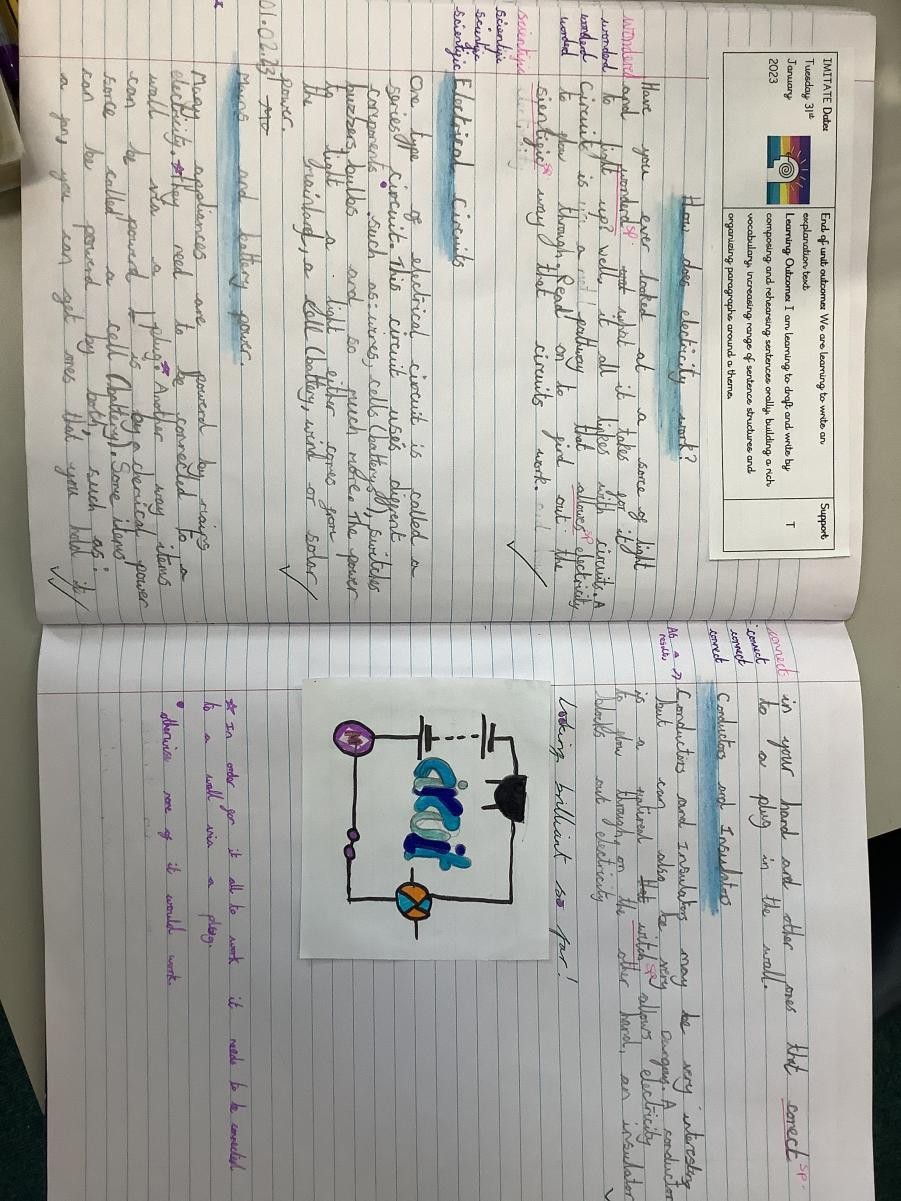 IMITATE Date:
Tuesday 31st
January
2023
End of unit outcome: We are learning to write an
explanation text
Learning Outcome: I am learning to draft and write by
composing and rehearsing sentences orally, building a rich
vocabulary, increasing range of sentence structures and
organizing paragraphs around a theme.
Support
T
How does electricity work?
Have you ever looked at a some of light
and wonderd sp what it takes for it
to light up? well, it all likes with circuits. A
Circuit is a pathway that allowes sp electricity
to flow through. Read on to find out the
sientific sp way that circuits work.
wonderd
wonderd
wonderd
wonderd
scientific
scientific
scientific
scientific
Electrical Circuits
One type of electrical circuit is called a
series circuit. This circuit uses different
components such as: wires, cells (batterys), switches
buzzers, bulbs and so much more. The power
to light a light either comes from
the mainland, a cell (battery, wind or solar
power.
01.02.23
Mains and battery power.
Many appliances are powerd by mains
electricity. they need to be connected to a
wall via a plug. Another way items
can be powerd is by a chemical power
some called a cell (battery). Some items
can be powerd by both, such as:
a fan, you can get ones that you hold it
in your hand and other ones that conect sp.
to a plug in the wall.
connect
connect
connect
connect
Conductors and Insulators
Conductors and Insulators may be very interesting
but can also be very dangers. A conductor
is a matireal witch sp allows electricity
to flow through, on the other hand, an insulator
blocks out electricity
As a
result,
looking brilliant so far!
circuit
M
In order for it all to work it needs to be connected
to a wall via a plug.
otherwise none of it would work.